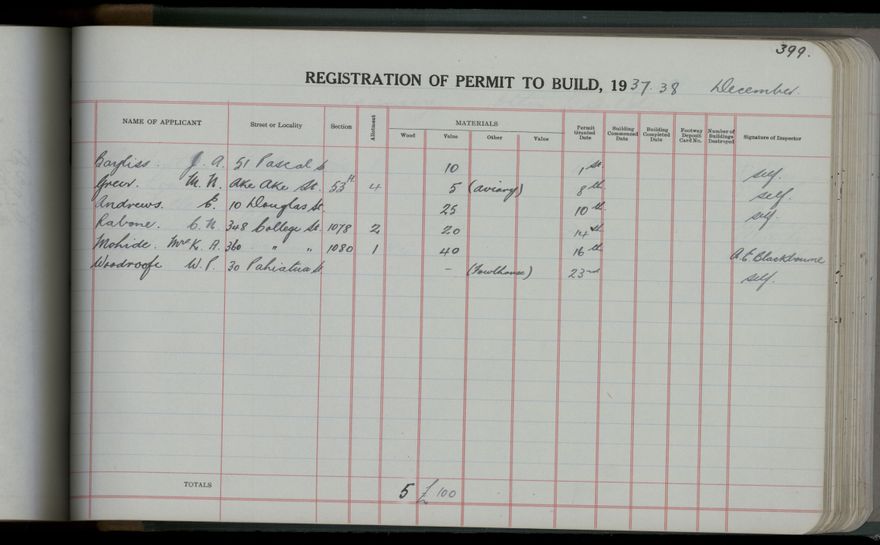 399.
REGISTRATION OF PERMIT TO BUILD, 1937.38 December.
NAME OF APPLICANT Street or Locality Section Allotment MATERIALS Wood Value Other Value Permit Granted Date Building Commenced Date Building Completed Date Footway Deposit Card No. Number of Buildings Destroyed Signature of Inspector
Bayliss. J. A. 51 Pascal St. 10 1st. self.
Grew. M. N. Ake Ake St. 53 4 5 (aviary) 8th. self.
Andrews. 10 Douglas St. 25 10th. self.
Rabone. C. N. 348 College St. 1078 2 20 14th
Mohide. Mrs K. A. 360 " " 1080 1 40 16th A. E. Blackbourne
Woodroofe W. P. 30 Pahiatua St. - (Fowlhouse) 23rd self.
TOTALS 5 £ 100